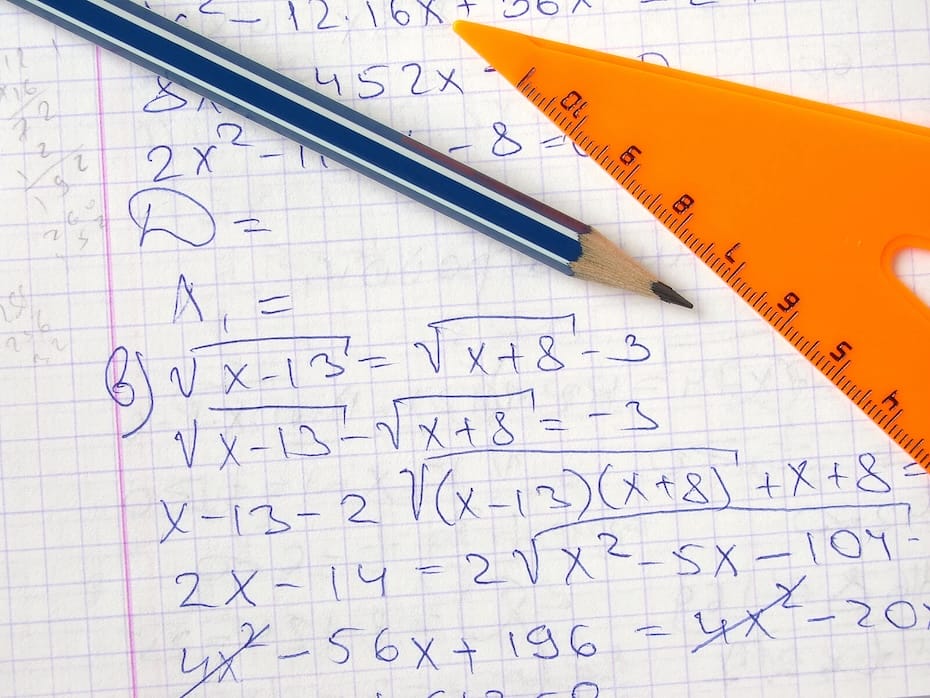 - 12,16x +
452x
2x² - - 8 =
D =
x₁ =
в) √(x-13) = √(x+8) - 3
√(x-13) - √(x+8) = -3
x-13-2 √((x-13)(x+8)) + x+8 =
2x-14 = 2√(x²-5x-104
4x² - 56x + 196 = 4x² - 20x
10 9 8 7 6 5 4